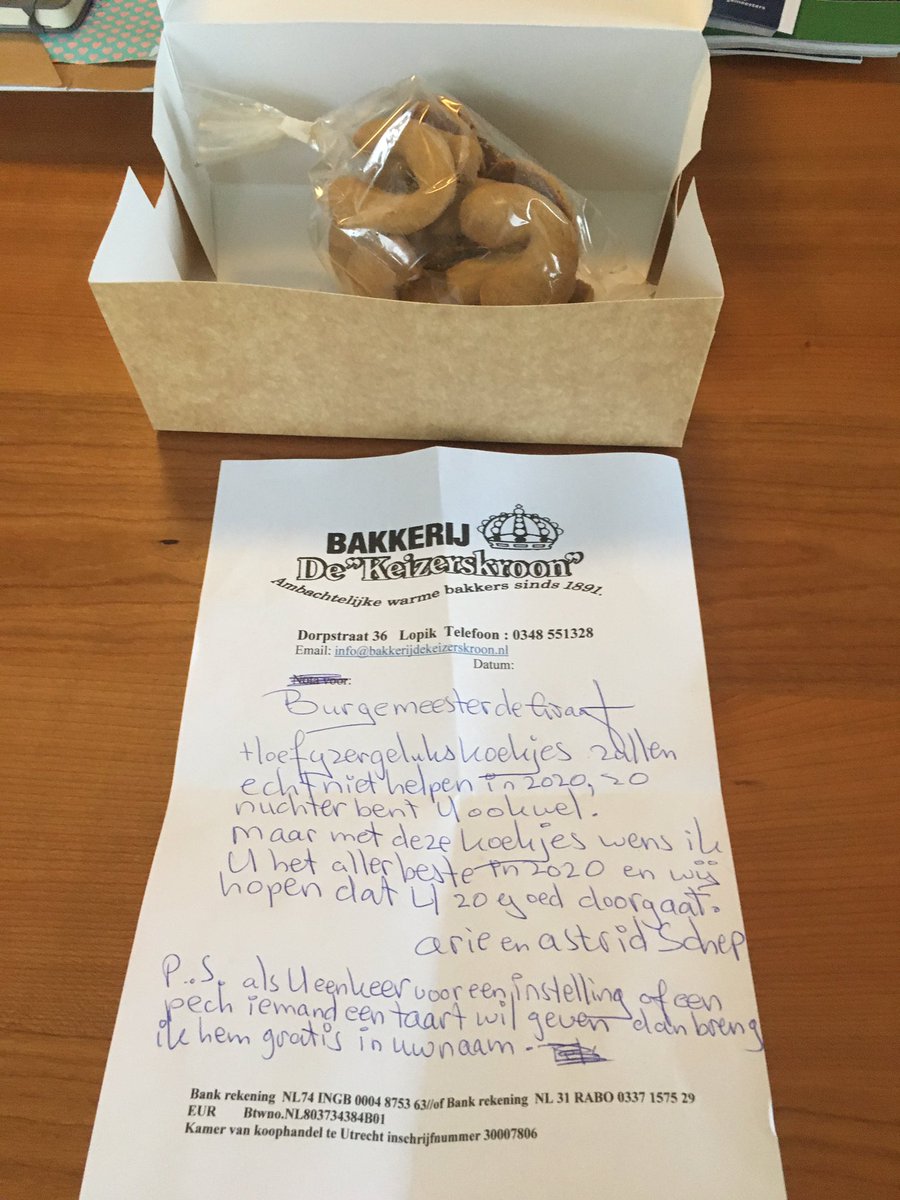 gemeesters
BAKKERIJ
De "Keizerskroon"
Ambachtelijke warme bakkers sinds 1891.
Dorpstraat 36 Lopik Telefoon : 0348 551328
Email: info@bakkerijdekeizerskroon.nl
Datum:
Nota voor:
Burgemeester de Graaf
Hoefyzergelukskoekjes zullen
echt niet helpen in 2020, zo
nuchter bent U ook wel.
maar met deze koekjes wens ik
U het allerbeste in 2020 en wij
hopen dat U zo goed doorgaat.
arie en astrid Schep
P.S. als U eenkeer voor een instelling of een
pech iemand een taart wil geven dan breng
ik hem gratis in uw naam.
Bank rekening NL74 INGB 0004 8753 63//of Bank rekening NL 31 RABO 0337 1575 29
EUR Btwno.NL803734384B01
Kamer van koophandel te Utrecht inschrijfnummer 30007806